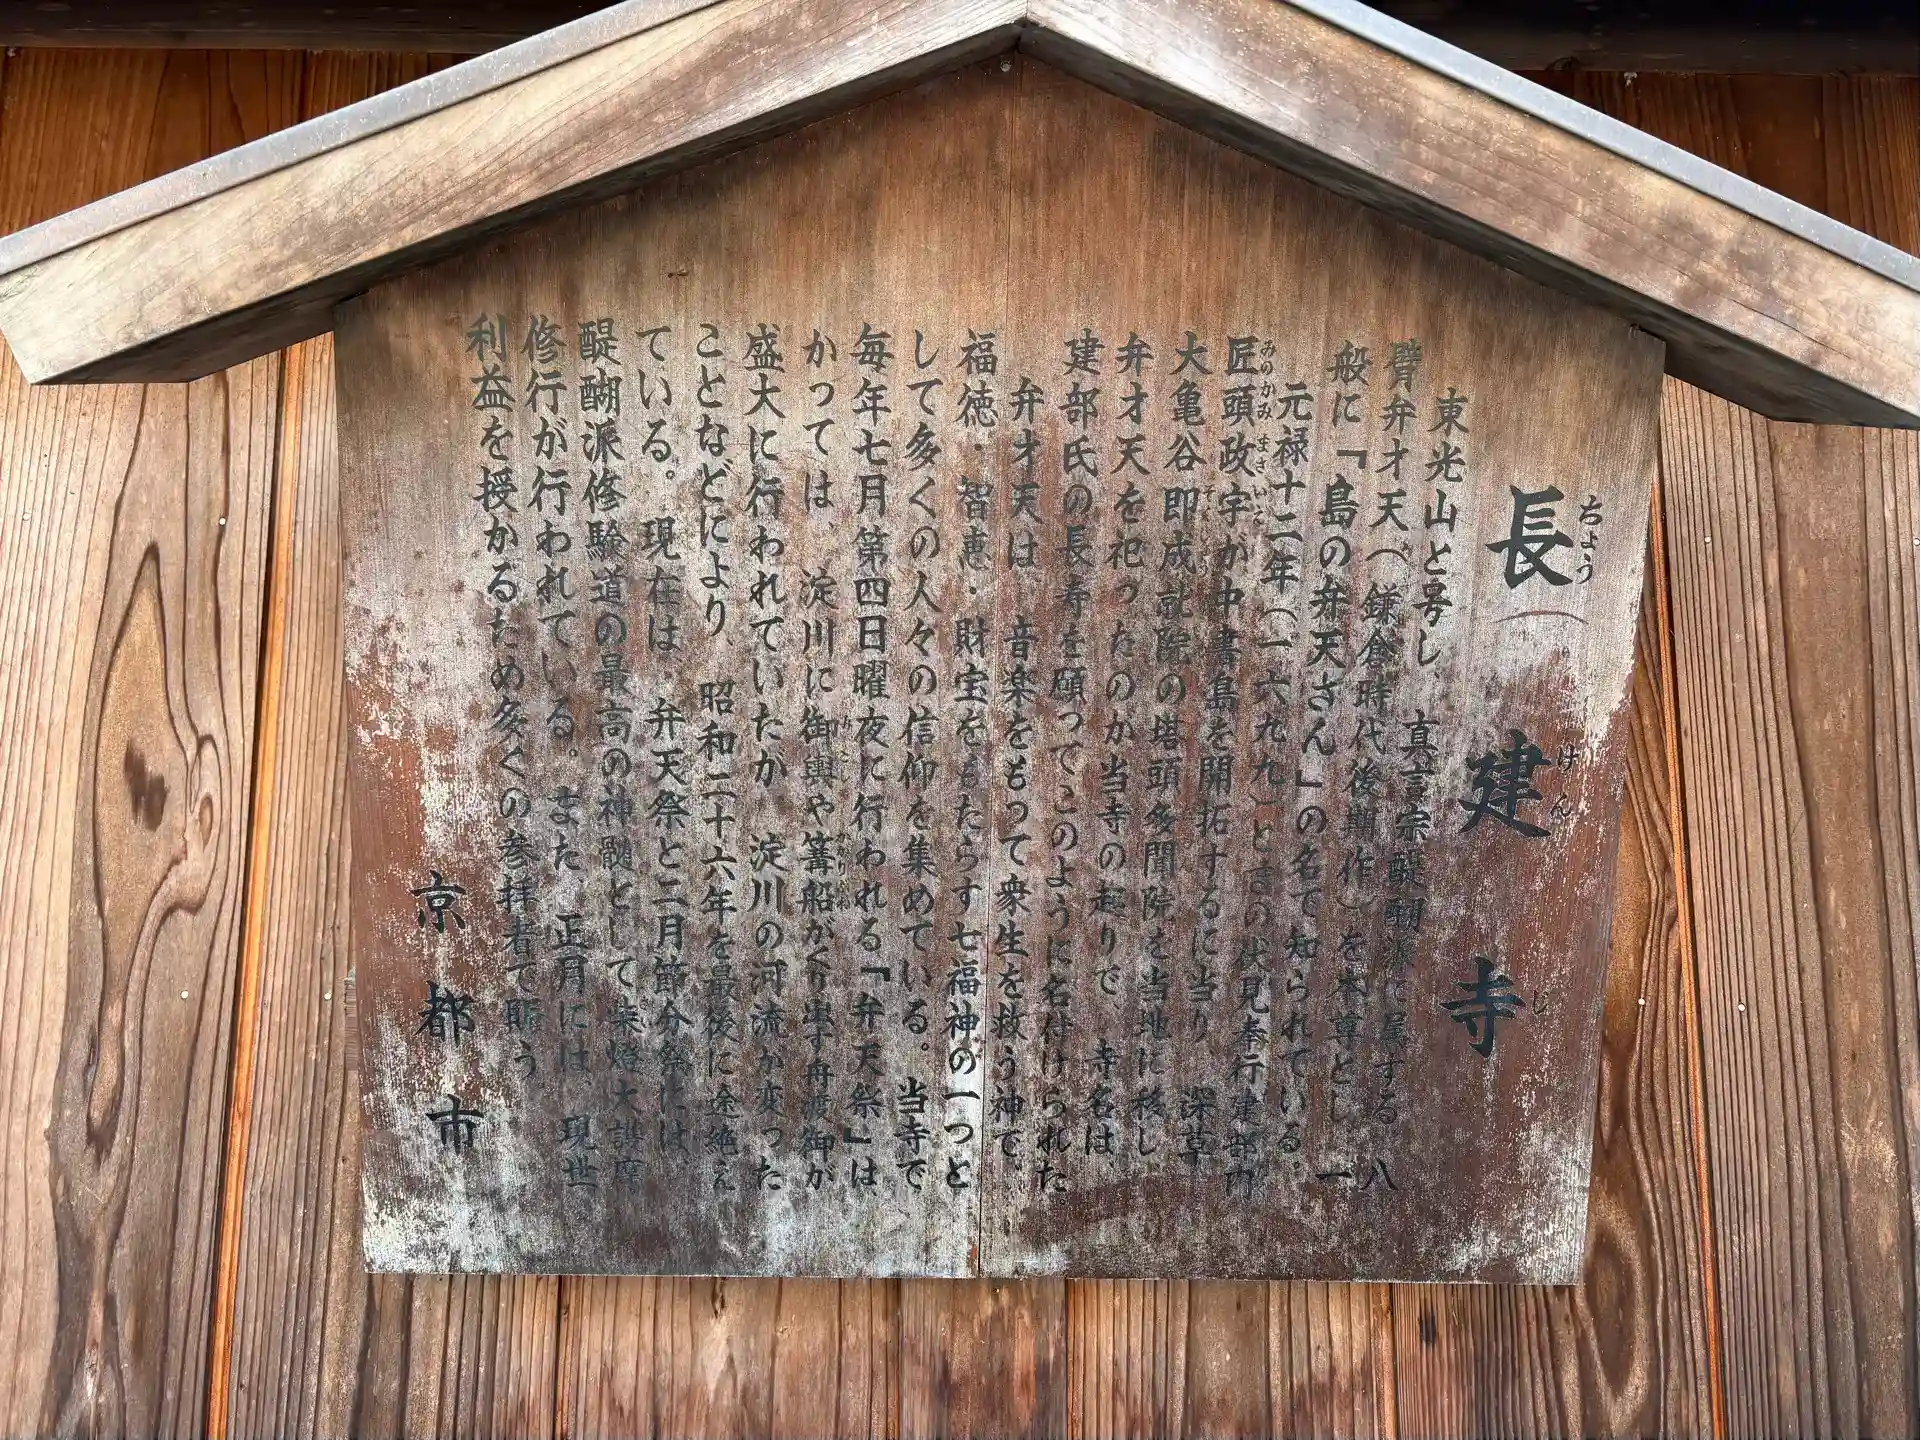 長建寺
ちょう けん じ
東光山と号し、真言宗醍醐派に属する。八
臂弁才天(鎌倉時代後期作)を本尊とし、一
般に「島の弁天さん」の名で知られている。
元禄十二年(一六九九)ときの伏見奉行建部内
匠頭政宇が中書島を開拓するに当り、深草
みのかみ まさ いえ
大亀谷即成就院の塔頭多聞院を当地に移し
弁才天を祀ったのが当寺の起りで、寺名は、
建部氏の長寿を願ってこのように名付けられた
弁才天は、音楽をもって衆生を救う神で、
福徳・智恵・財宝をもたらす七福神の一つと
して多くの人々の信仰を集めている。当寺で
毎年七月第四日曜夜に行われる「弁天祭」は、
かつては、淀川に御輿や篝船がくり出す舟渡御が
みこし かがりぶね
盛大に行われていたが、淀川の河流が変った
ことなどにより、昭和二十六年を最後に途絶え
ている。現在は、弁天祭と二月節分祭には、
醍醐派修験道の最高の神髄として柴燈大護摩
修行が行われている。また、正月には、現世
利益を授かるため多くの参拝者で賑う。
京都市